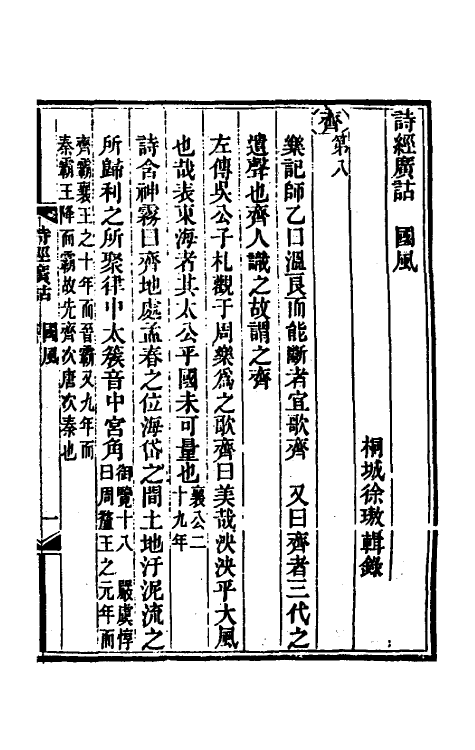 詩經廣詁　國風
桐城徐璈輯錄
齊第八
樂記師乙曰溫良而能斷者宜歌齊　又曰齊者三代之
遺聲也齊人識之故謂之齊
左傳吳公子札觀于周樂爲之歌齊曰美哉泱泱乎大風
也哉表東海者其太公乎國未可量也襄公二十九年
詩含神霧曰齊地處孟春之位海岱之間土地汙泥流之
所歸利之所聚律中太簇音中宮角御覽十八　嚴虞惇曰周釐王之元年而
齊霸襄王之十年而晉霸又九年而秦霸王降而霸故先齊次唐次秦也
詩經廣詁　國風　一